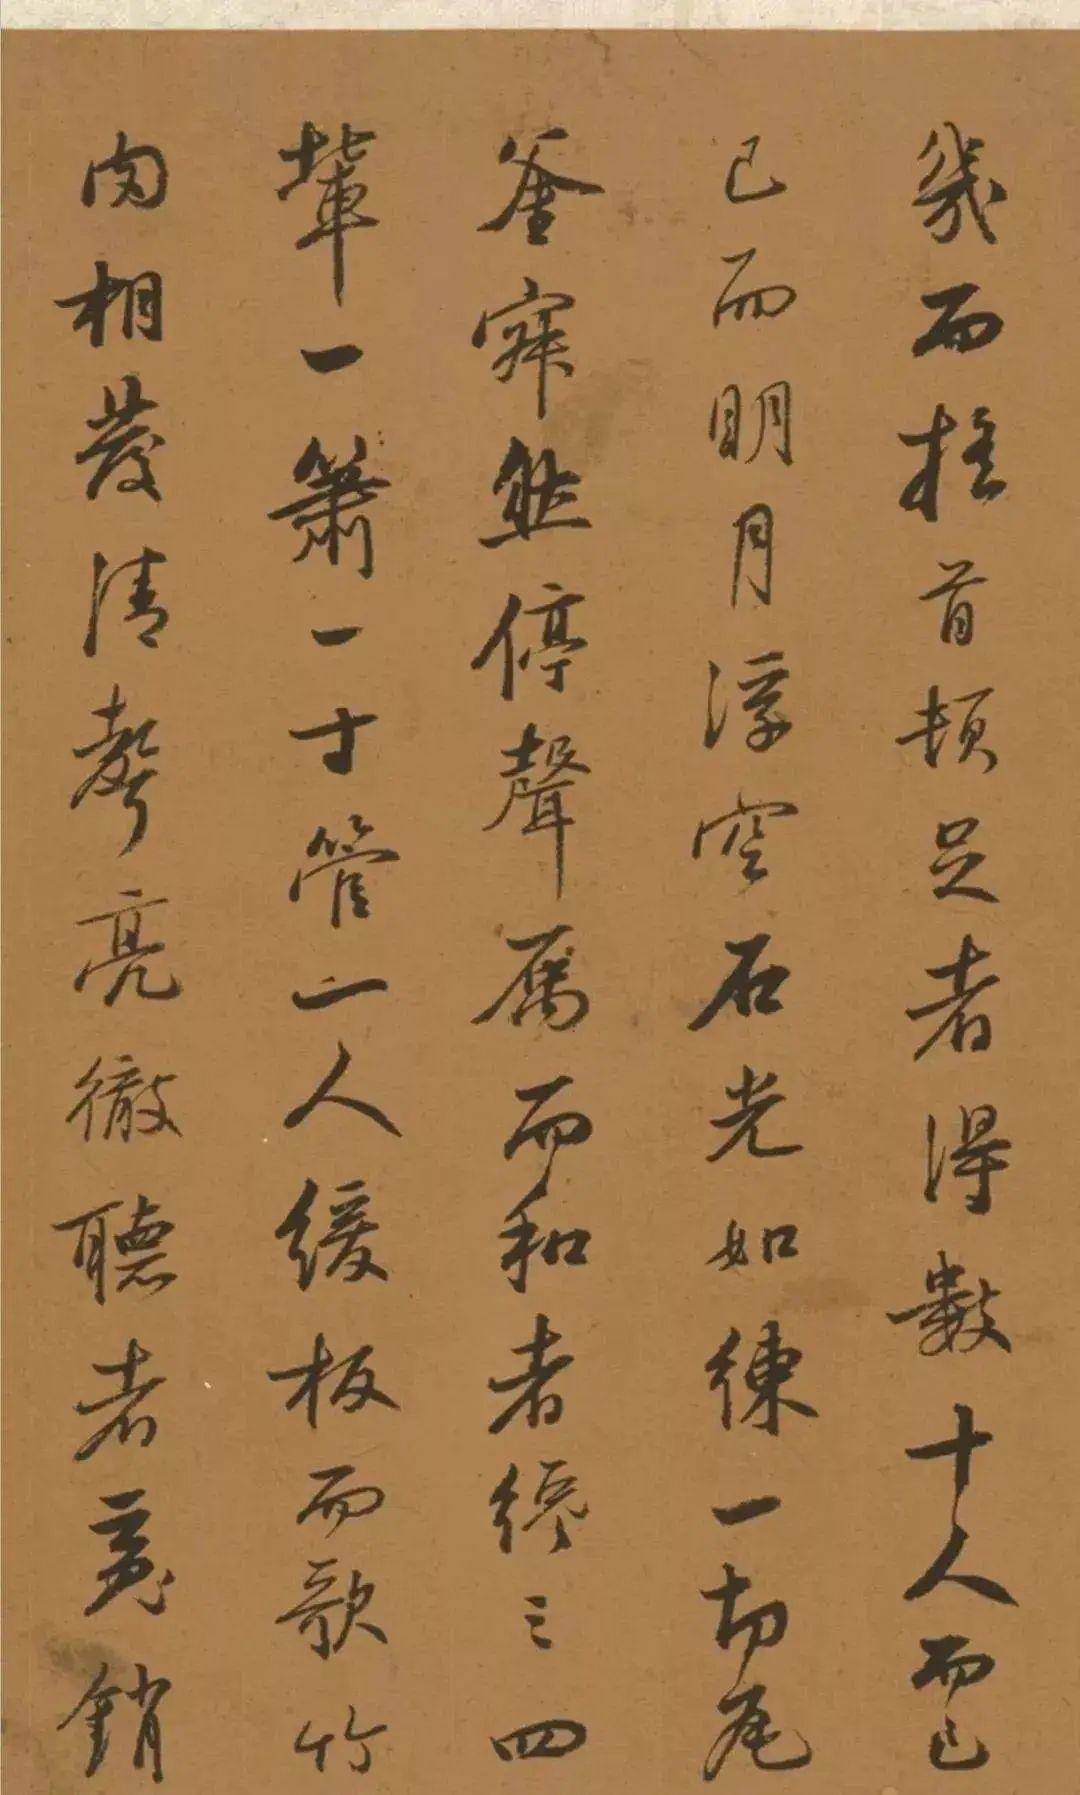 幾而摇首頓足者得數十人而已
已而明月浮空石光如練一切瓦
釜寂然停聲属而和者纔三四
輩一簫一寸管一人緩板而歌竹
肉相發清聲亮徹聽者魂銷